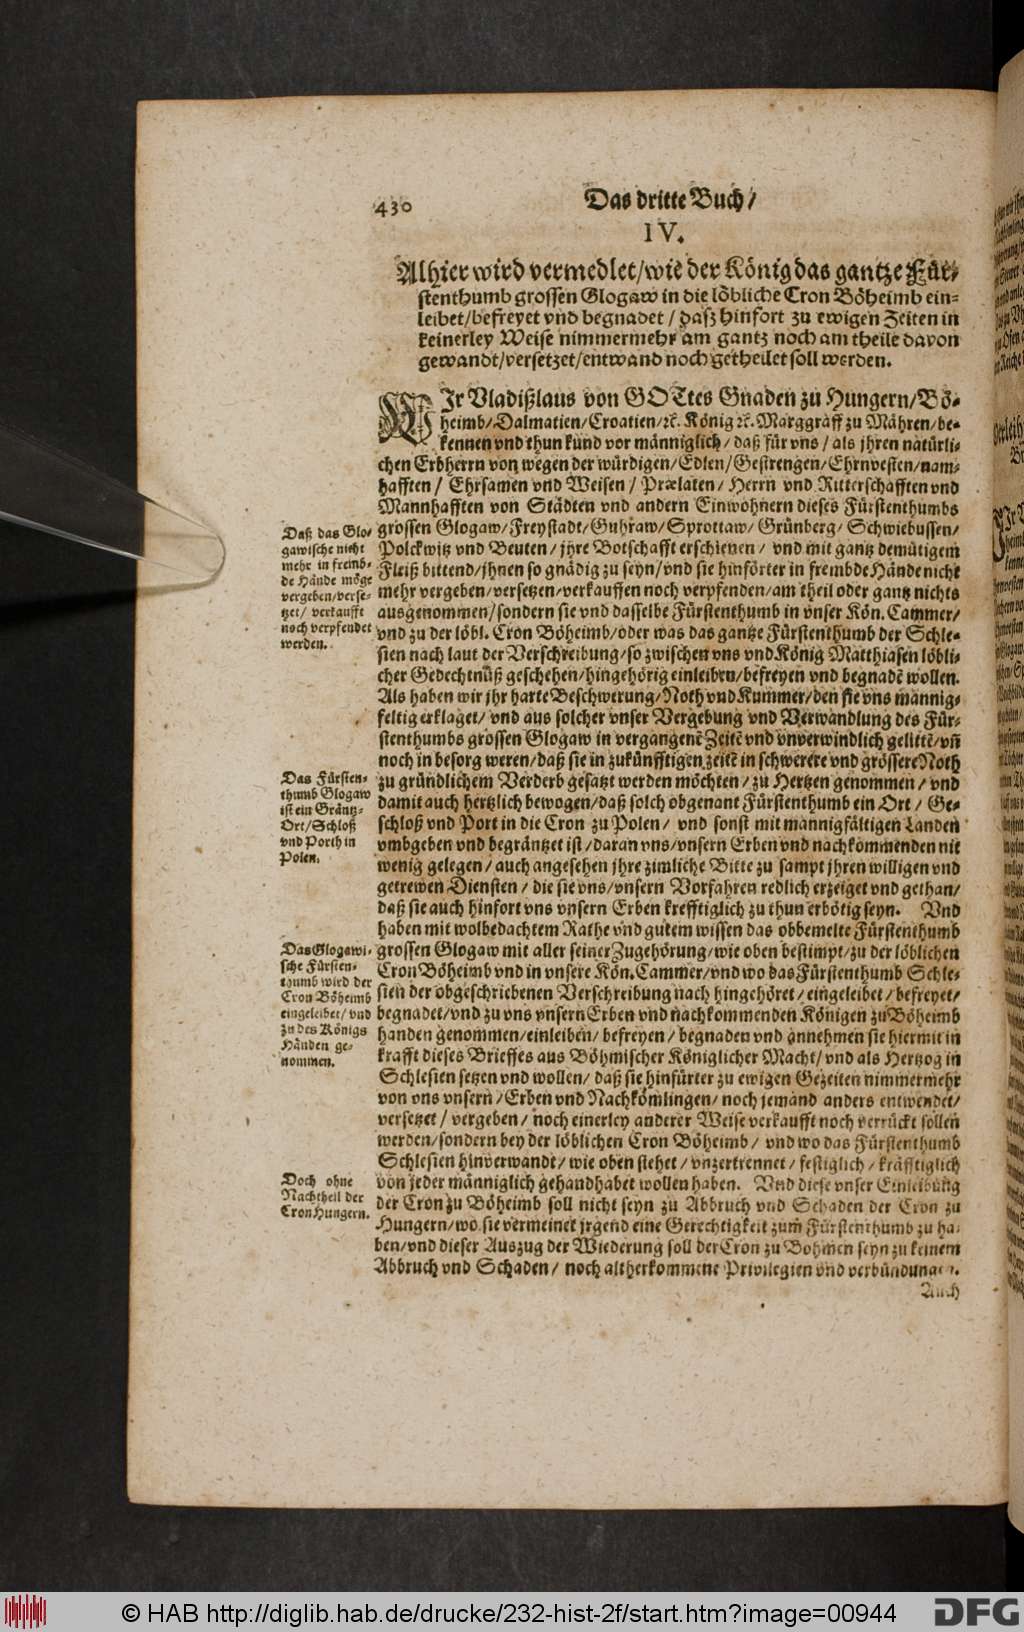 430
Das dritte Buch/
IV.
Alhier wird vermedlet/wie der König das gantze Für-
stenthumb grossen Glogaw in die löbliche Cron Böheimb ein-
leibet/befreyet vnd begnadet / daß hinfort zu ewigen Zeiten in
keinerley Weise nimmermehr am gantz noch am theile davon
gewandt/versetzet/entwand noch getheilet soll werden.
WIr Vladißlaus von GOTtes Gnaden zu Hungern/Bö-
heimb/Dalmatien/Croatien/ꝛc. König ꝛc. Marggraff zu Mähren/be-
kennen vnd thun kund vor männiglich/ daß für vns / als jhren natürli-
chen Erbherrn von wegen der würdigen/Edlen/Gestrengen/Ehrnvesten/nam-
hafften / Ehrsamen vnd Weisen / Prælaten/ Herrn vnd Ritterschafften vnd
Mannhafften von Städten vnd andern Einwohnern dieses Fürstenthumbs
grossen Glogaw/Freystadt/Guhraw/Sprottaw/Grünberg/Schwiebussen/
Polckwitz vnd Beuten/ jhre Botschafft erschienen / vnd mit gantz demütigem
Fleiß bittend/jhnen so gnädig zu seyn/vnd sie hinförter in frembde Hände nicht
mehr vergeben/versetzen/verkauffen noch verpfenden/am theil oder gantz nichts
ausgenommen/sondern sie vnd dasselbe Fürstenthumb in vnser Kön. Cammer/
vnd zu der löbl. Cron Böheimb/oder was das gantze Fürstenthumb der Schle-
sien nach laut der Verschreibung/so zwischen vns vnd König Matthiasen löbli-
cher Gedechtnüß geschehen/hingehörig einleiben/befreyen vnd begnadē wollen.
Als haben wir jhr harte Beschwerung/Noth vnd Kummer/den sie vns männig-
feltig erklaget/ vnd aus solcher vnser Vergebung vnd Verwandlung des Für-
stenthumbs grossen Glogaw in vergangenē Zeitē vnd vnverwindlich gelittē/vñ
noch in besorg weren/daß sie in zukünfftigen zeitē in schwerere vnd grössere Noth
zu gründlichem Verderb gesatzt werden möchten/ zu Hertzen genommen / vnd
damit auch hertzlich bewogen/daß solch obgenant Fürstenthumb ein Ort / Ge-
schloß vnd Port in die Cron zu Polen/ vnd sonst mit mannigfältigen Landen
vmbgeben vnd begräntzet ist/daran vns/vnsern Erben vnd nachkommenden nit
wenig gelegen/ auch angesehen jhre zimliche Bitte zu sampt jhren willigen vnd
getrewen Diensten / die sie vns/vnsern Vorfahren redlich erzeiget vnd gethan/
daß sie auch hinfort vns vnsern Erben krefftiglich zu thun erbötig seyn. Vnd
haben mit wolbedachtem Rathe vnd gutem wissen das obbemelte Fürstenthumb
grossen Glogaw mit aller seiner Zugehörung/wie oben bestimpt/zu der löblichen
Cron Böheimb vnd in vnsere Kön. Cammer/vnd wo das Fürstenthumb Schle-
sien der obgeschriebenen Verschreibung nach hingehöret/ eingeleibet/ befreyet/
begnadet/vnd zu vns vnsern Erben vnd nachkommenden Königen zu Böheimb
handen genommen/einleiben/ befreyen/ begnaden vnd annehmen sie hiermit in
krafft dieses Brieffes aus Böhmischer Königlicher Macht/ vnd als Hertzog in
Schlesien setzen vnd wollen/ daß sie hinfürter zu ewigen Gezeiten nimmermehr
von vns vnsern /Erben vnd Nachkömlingen/ noch jemand anders entwendet/
versetzet / vergeben/ noch einerley anderer Weise verkaufft noch verrückt sollen
werden/sondern bey der löblichen Cron Böheimb / vnd wo das Fürstenthumb
Schlesien hinverwandt/ wie oben stehet / vnzertrennet / festiglich / kräfftiglich
von jeder männiglich gehandhabet wollen haben. Vnd diese vnser Einleibung
der Cron zu Böheimb soll nicht seyn zu Abbruch vnd Schaden der Cron zu
Hungern/wo sie vermeinet jrgend eine Gerechtigkeit zum Fürstenthumb zu ha-
ben/vnd dieser Auszug der Wiederung soll der Cron zu Böhmen seyn zu keinem
Abbruch vnd Schaden/ noch altherkommene Privilegien vnd
Auch
Daß das Glo-
gawische nicht
mehr in fremb-
de Hände möge
vergeben/verse-
tzet/ verkaufft
noch verpfendet
werden.
Das Fürsten-
thumb Glogaw
ist ein Gräntz-
Ort/Schloß
vnd Porth in
Polen.
Das Glogawi-
sche Fürsten-
thumb wird der
Cron Böheimb
eingeleibet/ vnd
zu des Königs
Händen ge-
nommen.
Doch ohne
Nachtheil der
Cron Hungern.
© HAB http://diglib.hab.de/drucke/232-hist-2f/start.htm?image=00944
DFG